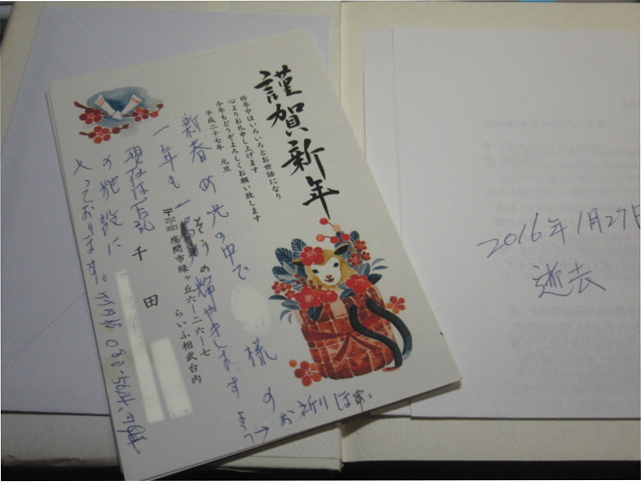 謹賀新年
昨年中はいろいろとお世話になり
心よりお礼申し上げます
今年もどうぞよろしくお願い致します
平成二十七年 元旦
新春の光の中で 様の
一年も一 そうの輝やきますよう
お祈り
現在は
の施設に
入っております。
座間市緑ヶ丘六ー二六ー七
らいふ相武台内
千田
2016年1月27日
逝去